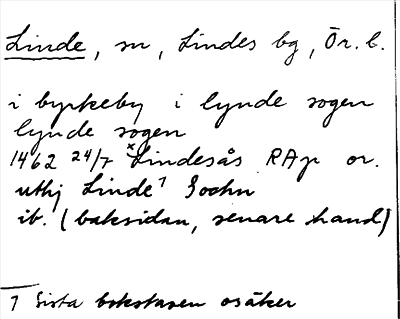 Linde, sn, Lindes bg, Ör. l.
i byrkeby i lynde sogen
lynde sogen
1462 24/7 × Lindesås RAp or.
uthj Linde ⁷ Sochn
ib. (baksidan, senare hand)
7 Sista bokstaven osäker